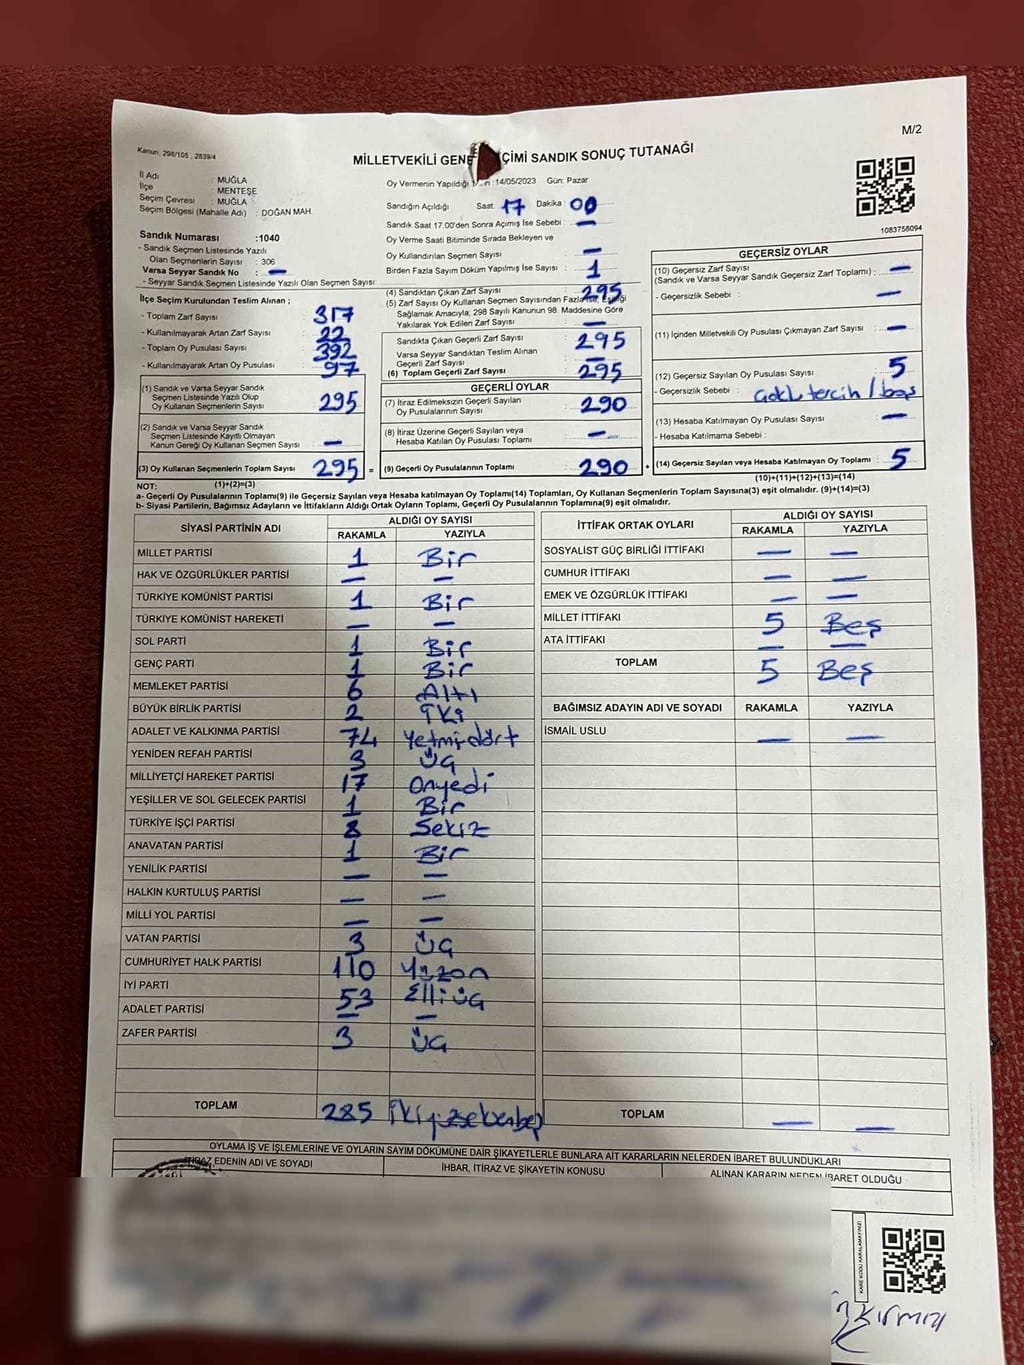 M/2
Kanun; 298/105 , 2839/4
MİLLETVEKİLİ GENE ÇİMİ SANDIK SONUÇ TUTANAĞI
İl Adı : MUĞLA
İlçe : MENTEŞE
Seçim Çevresi : MUĞLA
Seçim Bölgesi (Mahalle Adı) : DOĞAN MAH.
Oy Vermenin Yapıldığı :14/05/2023 Gün: Pazar
Sandığın Açıldığı Saat: 17 Dakika: 00
Sandık Saat 17:00'den Sonra Açımış İse Sebebi : —
1083758094
Sandık Numarası :1040
- Sandık Seçmen Listesinde Yazılı
Olan Seçmenlerin Sayısı : 306
Varsa Seyyar Sandık No : —
- Seyyar Sandık Seçmen Listesinde Yazılı Olan Seçmen Sayısı:
Oy Verme Saati Bitiminde Sırada Bekleyen ve
Oy Kullandırılan Seçmen Sayısı : —
Birden Fazla Sayım Döküm Yapılmış İse Sayısı : 1
İlçe Seçim Kurulundan Teslim Alınan ;
- Toplam Zarf Sayısı : 317
- Kullanılmayarak Artan Zarf Sayısı : 22
- Toplam Oy Pusulası Sayısı : 392
- Kullanılmayarak Artan Oy Pusulası : 97
(1) Sandık ve Varsa Seyyar Sandık
Seçmen Listesinde Yazılı Olup
Oy Kullanan Seçmenlerin Sayısı : 295
(2) Sandık ve Varsa Seyyar Sandık
Seçmen Listesinde Kayıtlı Olmayan
Kanun Gereği Oy Kullanan Seçmen Sayısı : —
(3) Oy Kullanan Seçmenlerin Toplam Sayısı : 295 =
(1)+(2)=(3)
(4) Sandıktan Çıkan Zarf Sayısı : 295
(5) Zarf Sayısı Oy Kullanan Seçmen Sayısından Fazla İse, Eşitliği
Sağlamak Amacıyla; 298 Sayılı Kanunun 98. Maddesine Göre
Yakılarak Yok Edilen Zarf Sayısı : —
Sandıkta Çıkan Geçerli Zarf Sayısı : 295
Varsa Seyyar Sandıktan Teslim Alınan
Geçerli Zarf Sayısı : —
(6) Toplam Geçerli Zarf Sayısı : 295
GEÇERLİ OYLAR
(7) İtiraz Edilmeksizin Geçerli Sayılan
Oy Pusulalarının Sayısı : 290
(8) İtiraz Üzerine Geçerli Sayılan veya
Hesaba Katılan Oy Pusulası Toplamı : —
(9) Geçerli Oy Pusulalarının Toplamı : 290 +
GEÇERSİZ OYLAR
(10) Geçersiz Zarf Sayısı
(Sandık ve Varsa Seyyar Sandık Geçersiz Zarf Toplamı) : —
- Geçersizlik Sebebi : —
(11) İçinden Milletvekili Oy Pusulası Çıkmayan Zarf Sayısı : —
(12) Geçersiz Sayılan Oy Pusulası Sayısı : 5
- Geçersizlik Sebebi : Çoklu tercih / boş
(13) Hesaba Katılmayan Oy Pusulası Sayısı : —
- Hesaba Katılmama Sebebi :
(14) Geçersiz Sayılan veya Hesaba Katılmayan Oy Toplamı : 5
(10)+(11)+(12)+(13)=(14)
NOT:
a- Geçerli Oy Pusulalarının Toplamı(9) ile Geçersiz Sayılan veya Hesaba katılmayan Oy Toplamı(14) Toplamları, Oy Kullanan Seçmenlerin Toplam Sayısına(3) eşit olmalıdır. (9)+(14)=(3)
b- Siyasi Partilerin, Bağımsız Adayların ve İttifakların Aldığı Ortak Oyların Toplamı, Geçerli Oy Pusulalarının Toplamına(9) eşit olmalıdır.
SİYASİ PARTİNİN ADI ALDIĞI OY SAYISI
RAKAMLA YAZIYLA
MİLLET PARTİSİ 1 Bir
HAK VE ÖZGÜRLÜKLER PARTİSİ — —
TÜRKİYE KOMÜNİST PARTİSİ 1 Bir
TÜRKİYE KOMÜNİST HAREKETİ — —
SOL PARTİ 1 Bir
GENÇ PARTİ 1 Bir
MEMLEKET PARTİSİ 6 Altı
BÜYÜK BİRLİK PARTİSİ 2 İki
ADALET VE KALKINMA PARTİSİ 74 Yetmişdört
YENİDEN REFAH PARTİSİ 3 Üç
MİLLİYETÇİ HAREKET PARTİSİ 17 Onyedi
YEŞİLLER VE SOL GELECEK PARTİSİ 1 Bir
TÜRKİYE İŞÇİ PARTİSİ 8 Sekiz
ANAVATAN PARTİSİ 1 Bir
YENİLİK PARTİSİ — —
HALKIN KURTULUŞ PARTİSİ — —
MİLLİ YOL PARTİSİ — —
VATAN PARTİSİ 3 Üç
CUMHURİYET HALK PARTİSİ 110 Yüzon
İYİ PARTİ 53 Elliüç
ADALET PARTİSİ — —
ZAFER PARTİSİ 3 Üç
TOPLAM 285 İkiyüzseksenbeş
İTTİFAK ORTAK OYLARI ALDIĞI OY SAYISI
RAKAMLA YAZIYLA
SOSYALİST GÜÇ BİRLİĞİ İTTİFAKI — —
CUMHUR İTTİFAKI — —
EMEK VE ÖZGÜRLÜK İTTİFAKI — —
MİLLET İTTİFAKI 5 Beş
ATA İTTİFAKI — —
TOPLAM 5 Beş
BAĞIMSIZ ADAYIN ADI VE SOYADI RAKAMLA YAZIYLA
İSMAİL USLU — —
TOPLAM — —
OYLAMA İŞ VE İŞLEMLERİNE VE OYLARIN SAYIM DÖKÜMÜNE DAİR ŞİKAYETLERLE BUNLARA AİT KARARLARIN NELERDEN İBARET BULUNDUKLARI
İTİRAZ EDENİN ADI VE SOYADI İHBAR, İTİRAZ VE ŞİKAYETİN KONUSU ALINAN KARARIN NEDEN İBARET OLDUĞU
KARE KODU KARALAMAYINIZ!